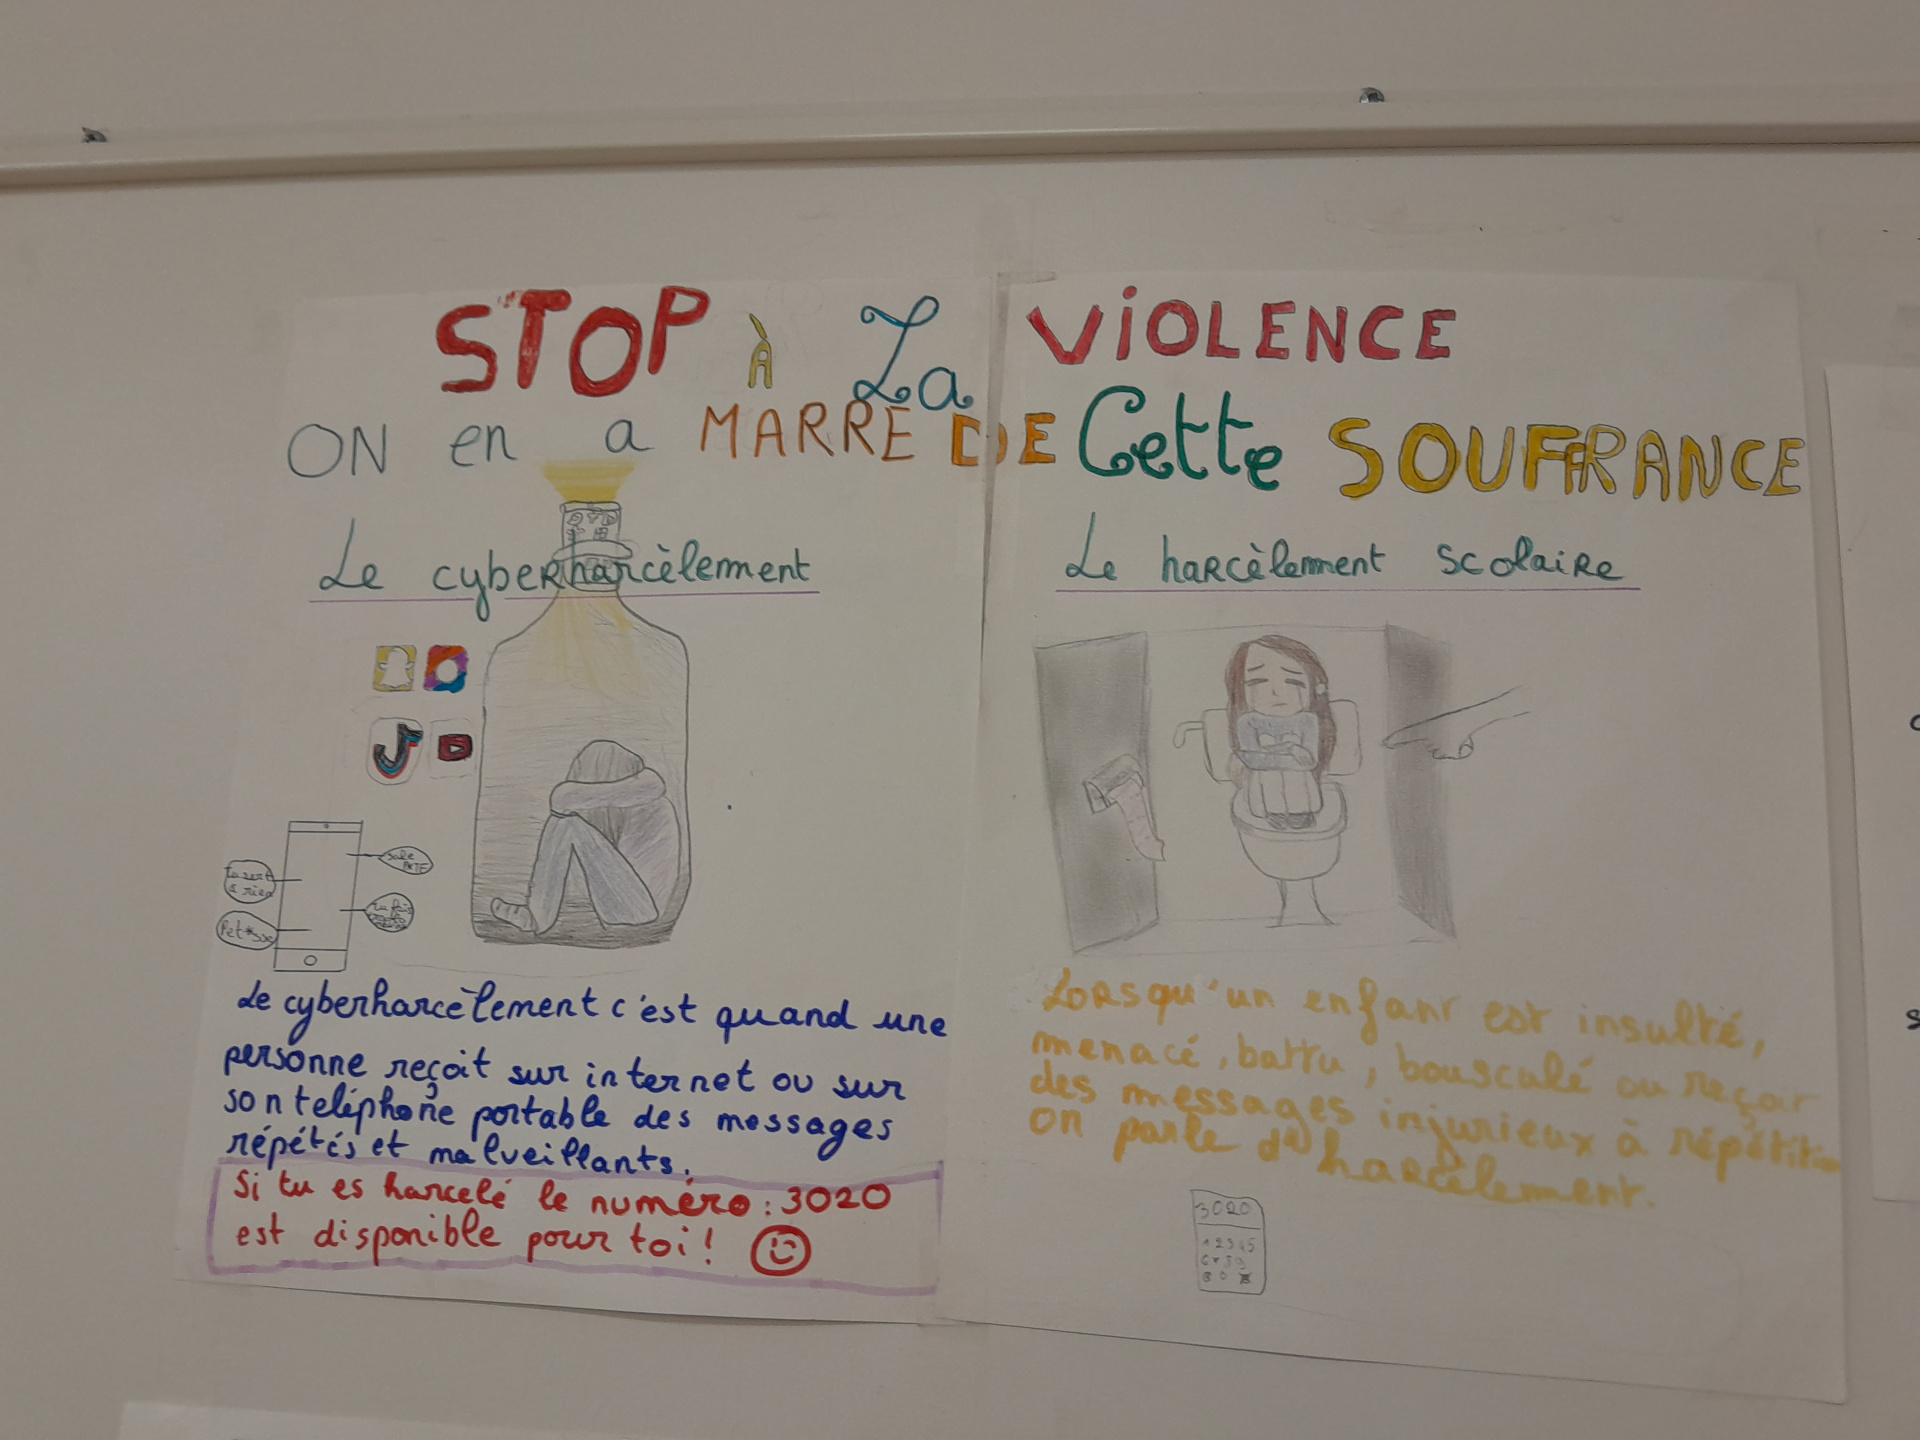 STOP À La VIOLENCE
ON en a MARRE DE Cette SOUFFRANCE
Le cyberharcèlement
sale
Tu sert
à rien
Pet*sse
Le cyberharcèlement c'est quand une
personne reçoit sur internet ou sur
son teléphone portable des messages
répétés et malveillants.
Si tu es harcelé le numéro : 3020
est disponible pour toi !
Le harcèlement scolaire
Lorsqu'un enfant est insulté,
menacé, battu, bousculé ou reçoit
des messages injurieux à répétition
on parle de harcèlement.
3020
1 2 3 4 5